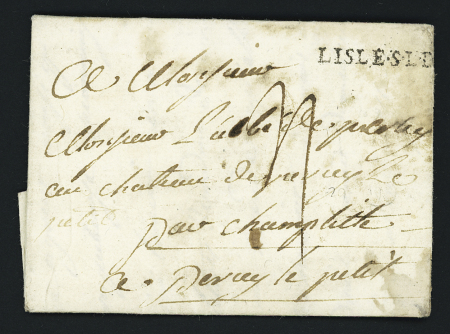 LISLE.S.L.D
A Monsieur
Monsieur L'abbé de percey
au chateau de percey le
petit
par champlitte
a percey le petit